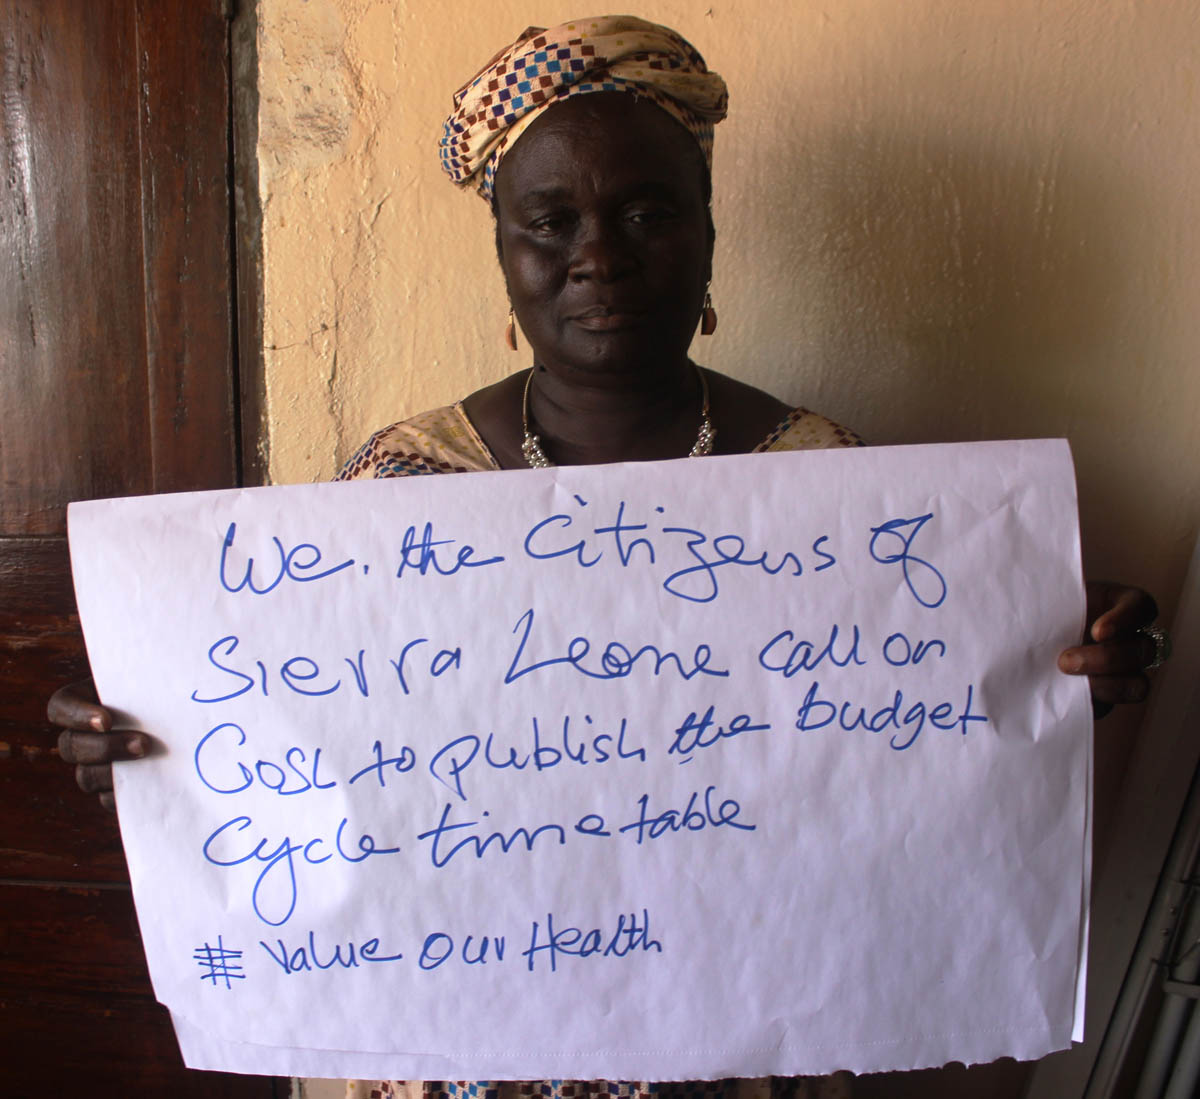 We, the Citizens of
Sierra Leone call on
GoSL to publish the budget
Cycle timetable
# Value Our Health